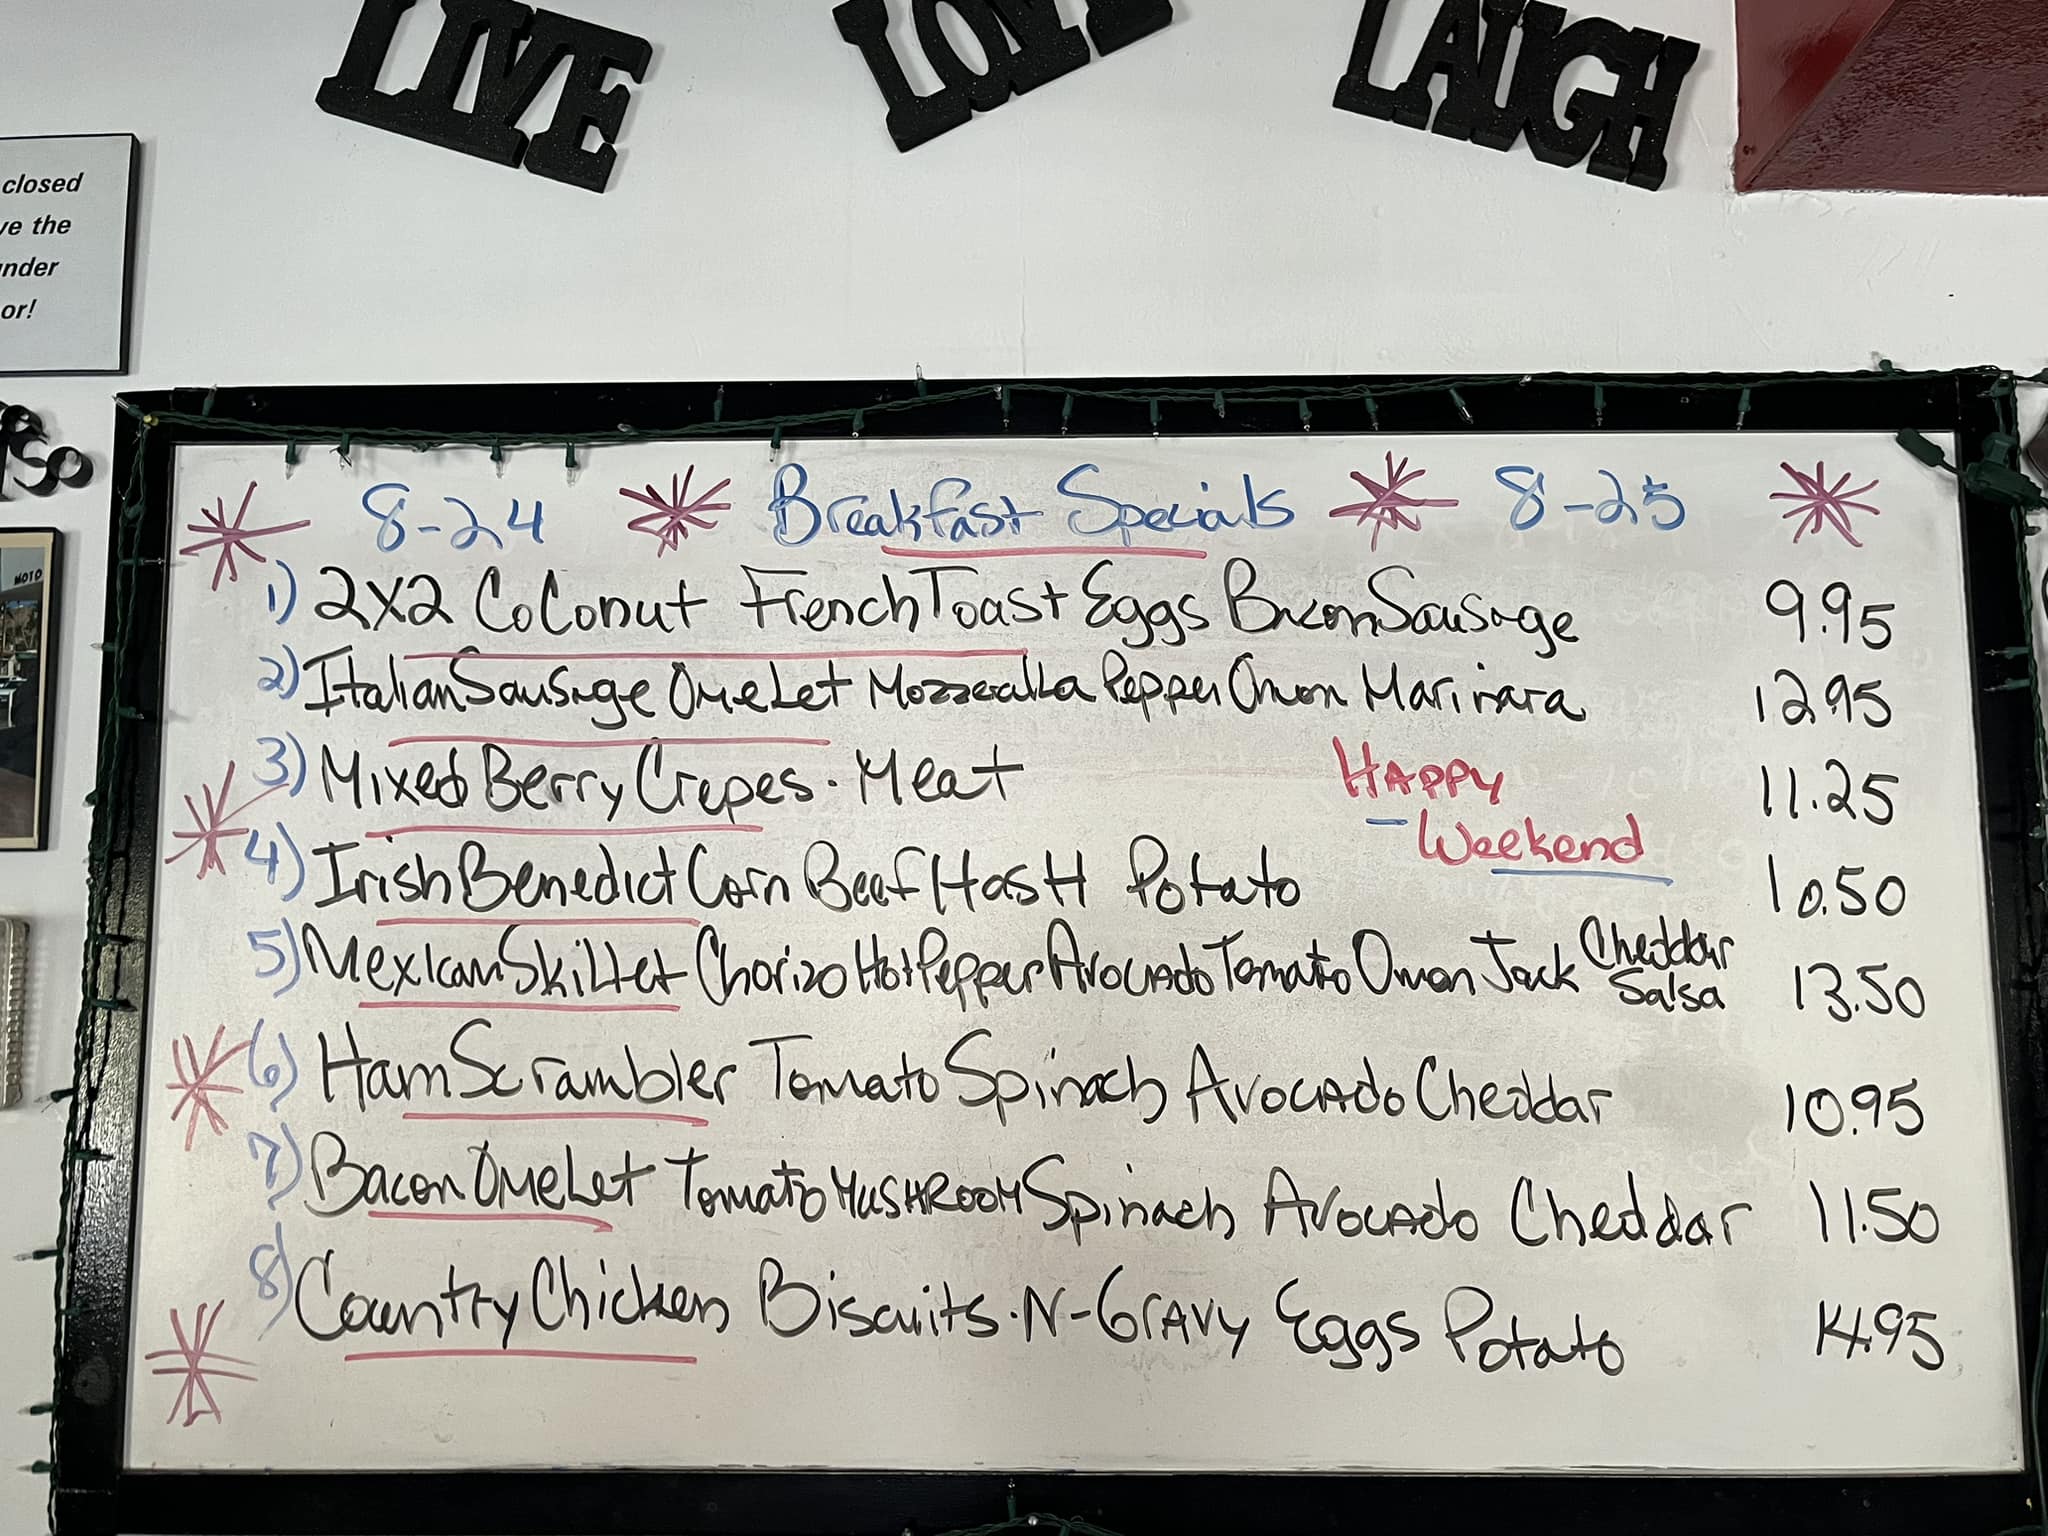 LIVE LOVE LAUGH
closed
ve the
nder
or!
MOTO
8-24 Breakfast Specials 8-25
1) 2x2 Coconut French Toast Eggs Bacon Sausage 9.95
2) Italian Sausage Omelet Mozzeralla Pepper Onion Marinara 12.95
3) Mixed Berry Crepes. Meat 11.25
Happy
Weekend
4) Irish Benedict Corn Beef Hash Potato 10.50
5) Mexican Skillet Chorizo Hot Pepper Avocado Tomato Onion Jack Cheddar Salsa 13.50
6) Ham Scrambler Tomato Spinach Avocado Cheddar 10.95
7) Bacon Omelet Tomato MUSHROOM Spinach Avocado Cheddar 11.50
8) Country Chicken Biscuits-N-Gravy Eggs Potato 14.95